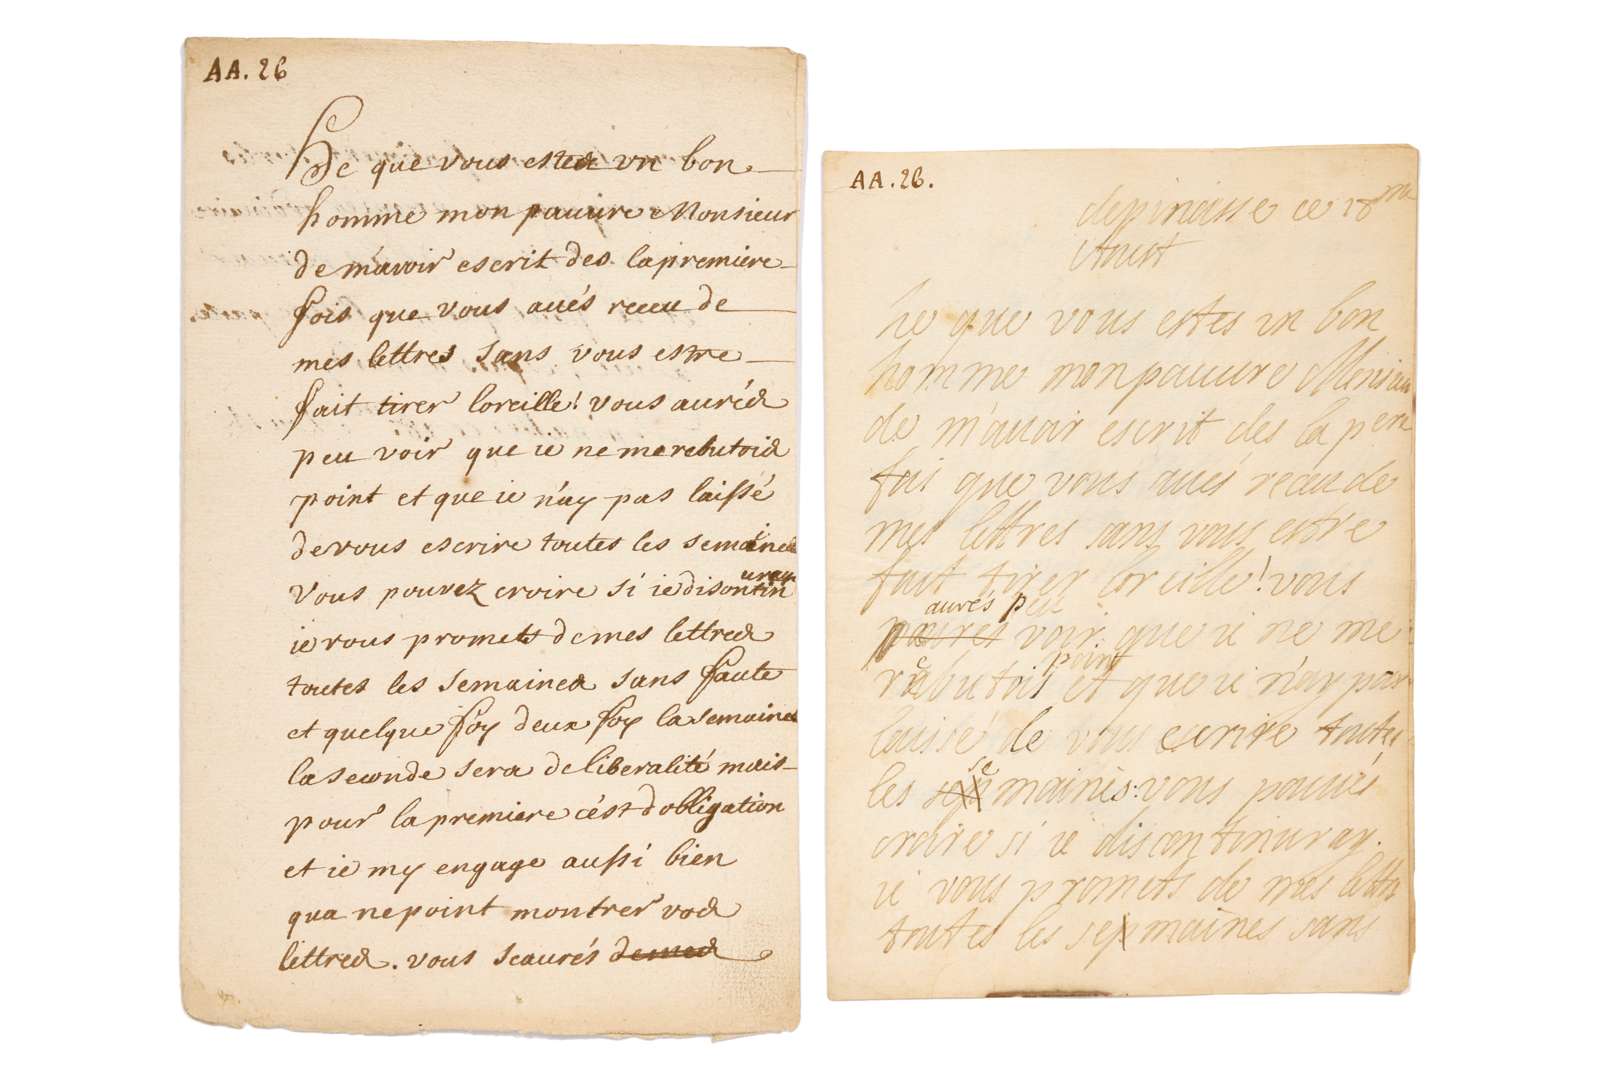 AA. 26
He que vous estes vn bon
homme mon pauure Monsieur
de m'auoir escrit des la premiere
fois que vous aués receu de
mes lettres sans vous estre
fait tirer loreille! vous aurés
peu voir que ie ne me rebutois
point et que ie n'ay pas laissé
de vous escrire toutes les semaines
vous pouvez croire si ie discontin
uray
ie vous promets de mes lettres
toutes les semaines sans faute
et quelque foy deux foy la semaine
la seconde sera de liberalité mais
pour la premiere c'est d'obligation
et ie my engage aussi bien
qua ne point montrer vos
lettres. vous scaurés demes
AA. 26.
despinasse ce 18me
Aust
he que vous estes vn bon
homme mon pauure Monsieur
de m'auoir escrit des la pere
fois que vous aués receu de
mes lettres sans vous estre
fait tirer loreille! vous
aurés peu
paures voir que ie ne me
point
rebutois et que ie n'ay pas
laissé de vous ecrire toutes
se
les sep maines: vous pauués
croire si ie discontinuray.
ie vous promets de mes lettres
toutes les sepmaines sans